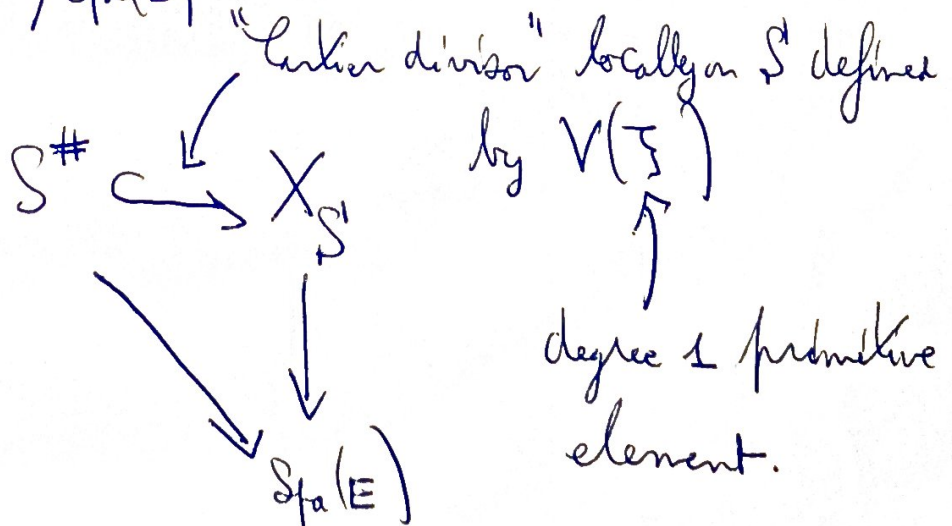 "Cartier divisor" locally on S defined
by V(ξ)
S^# ↪ X_S
degree 1 primitive
element.
Spa(E)